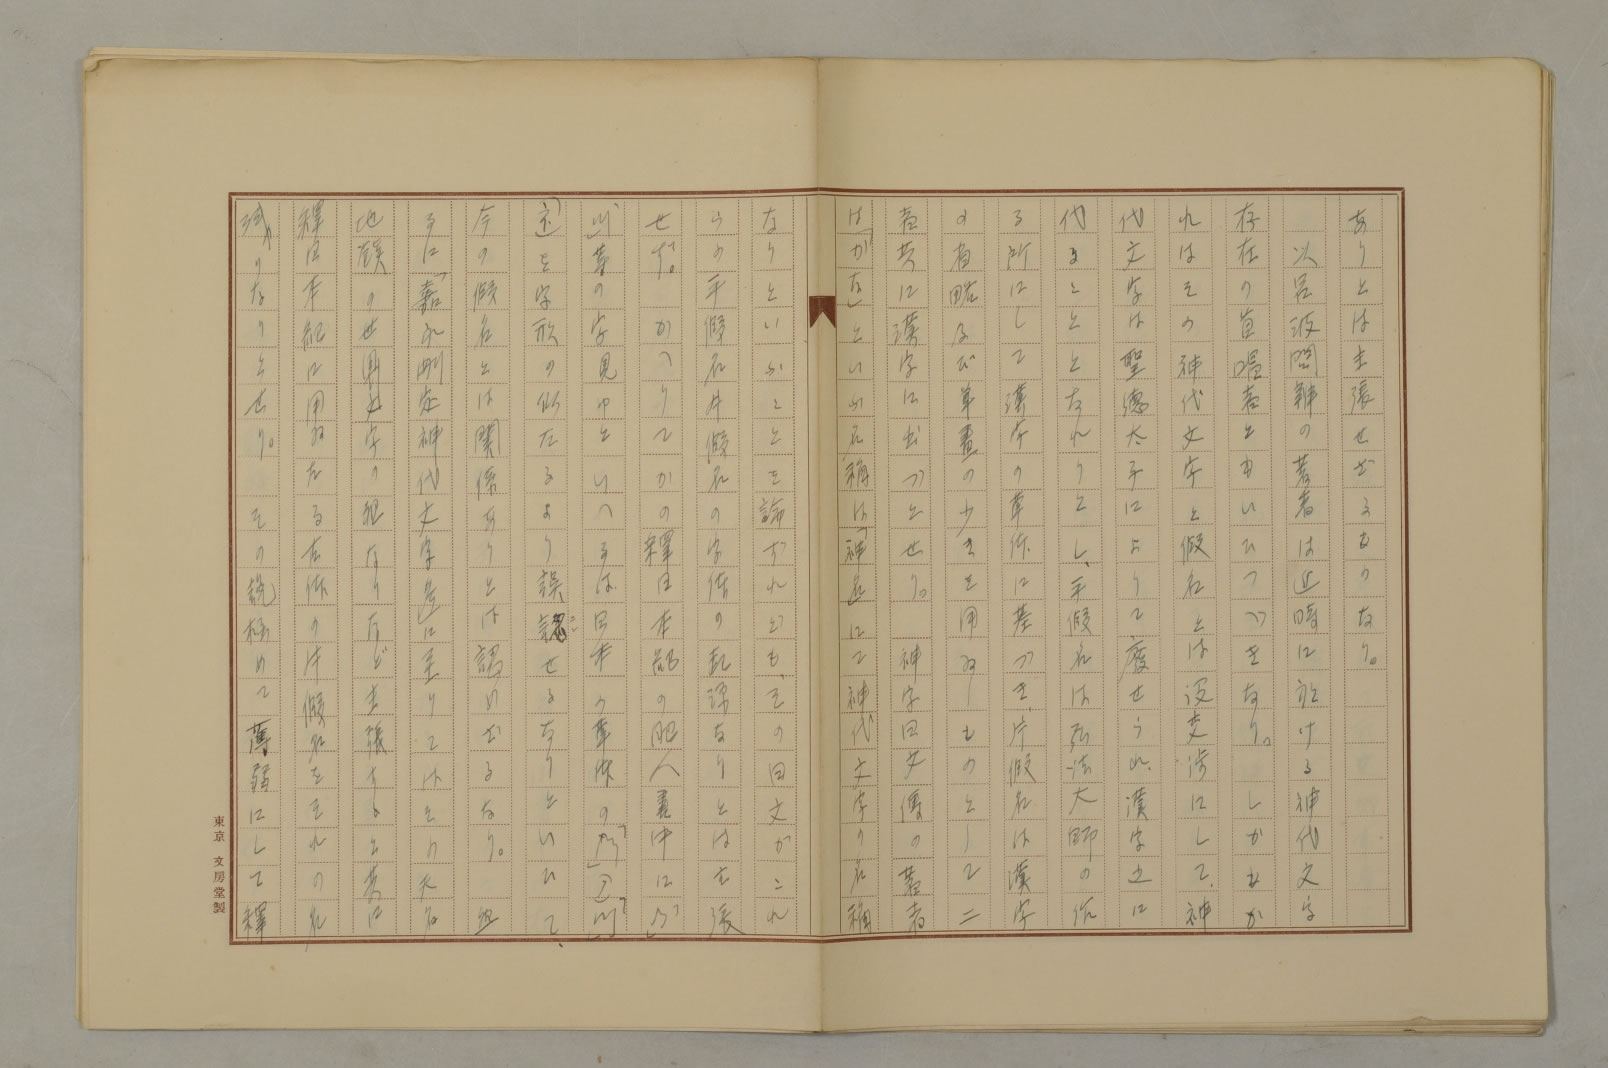 ありとは主張せざるものなり。
以呂波問辨の著者は近時に於ける神代文字
存在の首唱者ともいひつべきなり。しかもか
れはその神代文字と假名とは没交渉にして、神
代文字は聖德太子によりて廢せられ、漢字之に
代ることとなれりとし、平假名は弘法大師の作
る所にして漢字の草体に基づき、片假名は漢字
の省略及び草畫の少きを用ゐしものとして二
者共に漢字に出づとせり。神字日文傳の著者
は「かな」といふ名稱は「神名」にて神代文字の名稱
なりといふことを論ずれども、その日文がこれ
らの平假名片假名の字体の起源なりとは主張
せず。かへりてかの釋日本紀の肥人書中に
の字見ゆといへるは日本の草体の
を字形の似たるより誤認せるなりといひて、
今の假名とは關係ありとは認めざるなり。然
るに「嘉永刪定神代文字考」に至りては
地鎭の
釋日本紀に用ゐたる古体の片假名をそれの
なりとせり。その說極めて薄弱にして釋
東京 文房堂製